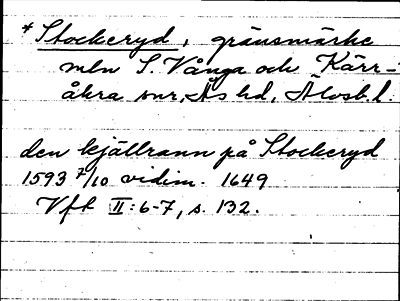 *Stockeryd, gränsmärke
mln S. Vånga och Kärr-
åkra snr, Ås hd, Älvsb. l.
den kjällrann på Stockeryd
1593 7/10 vidim. 1649
Vft II:6-7, s. 132.